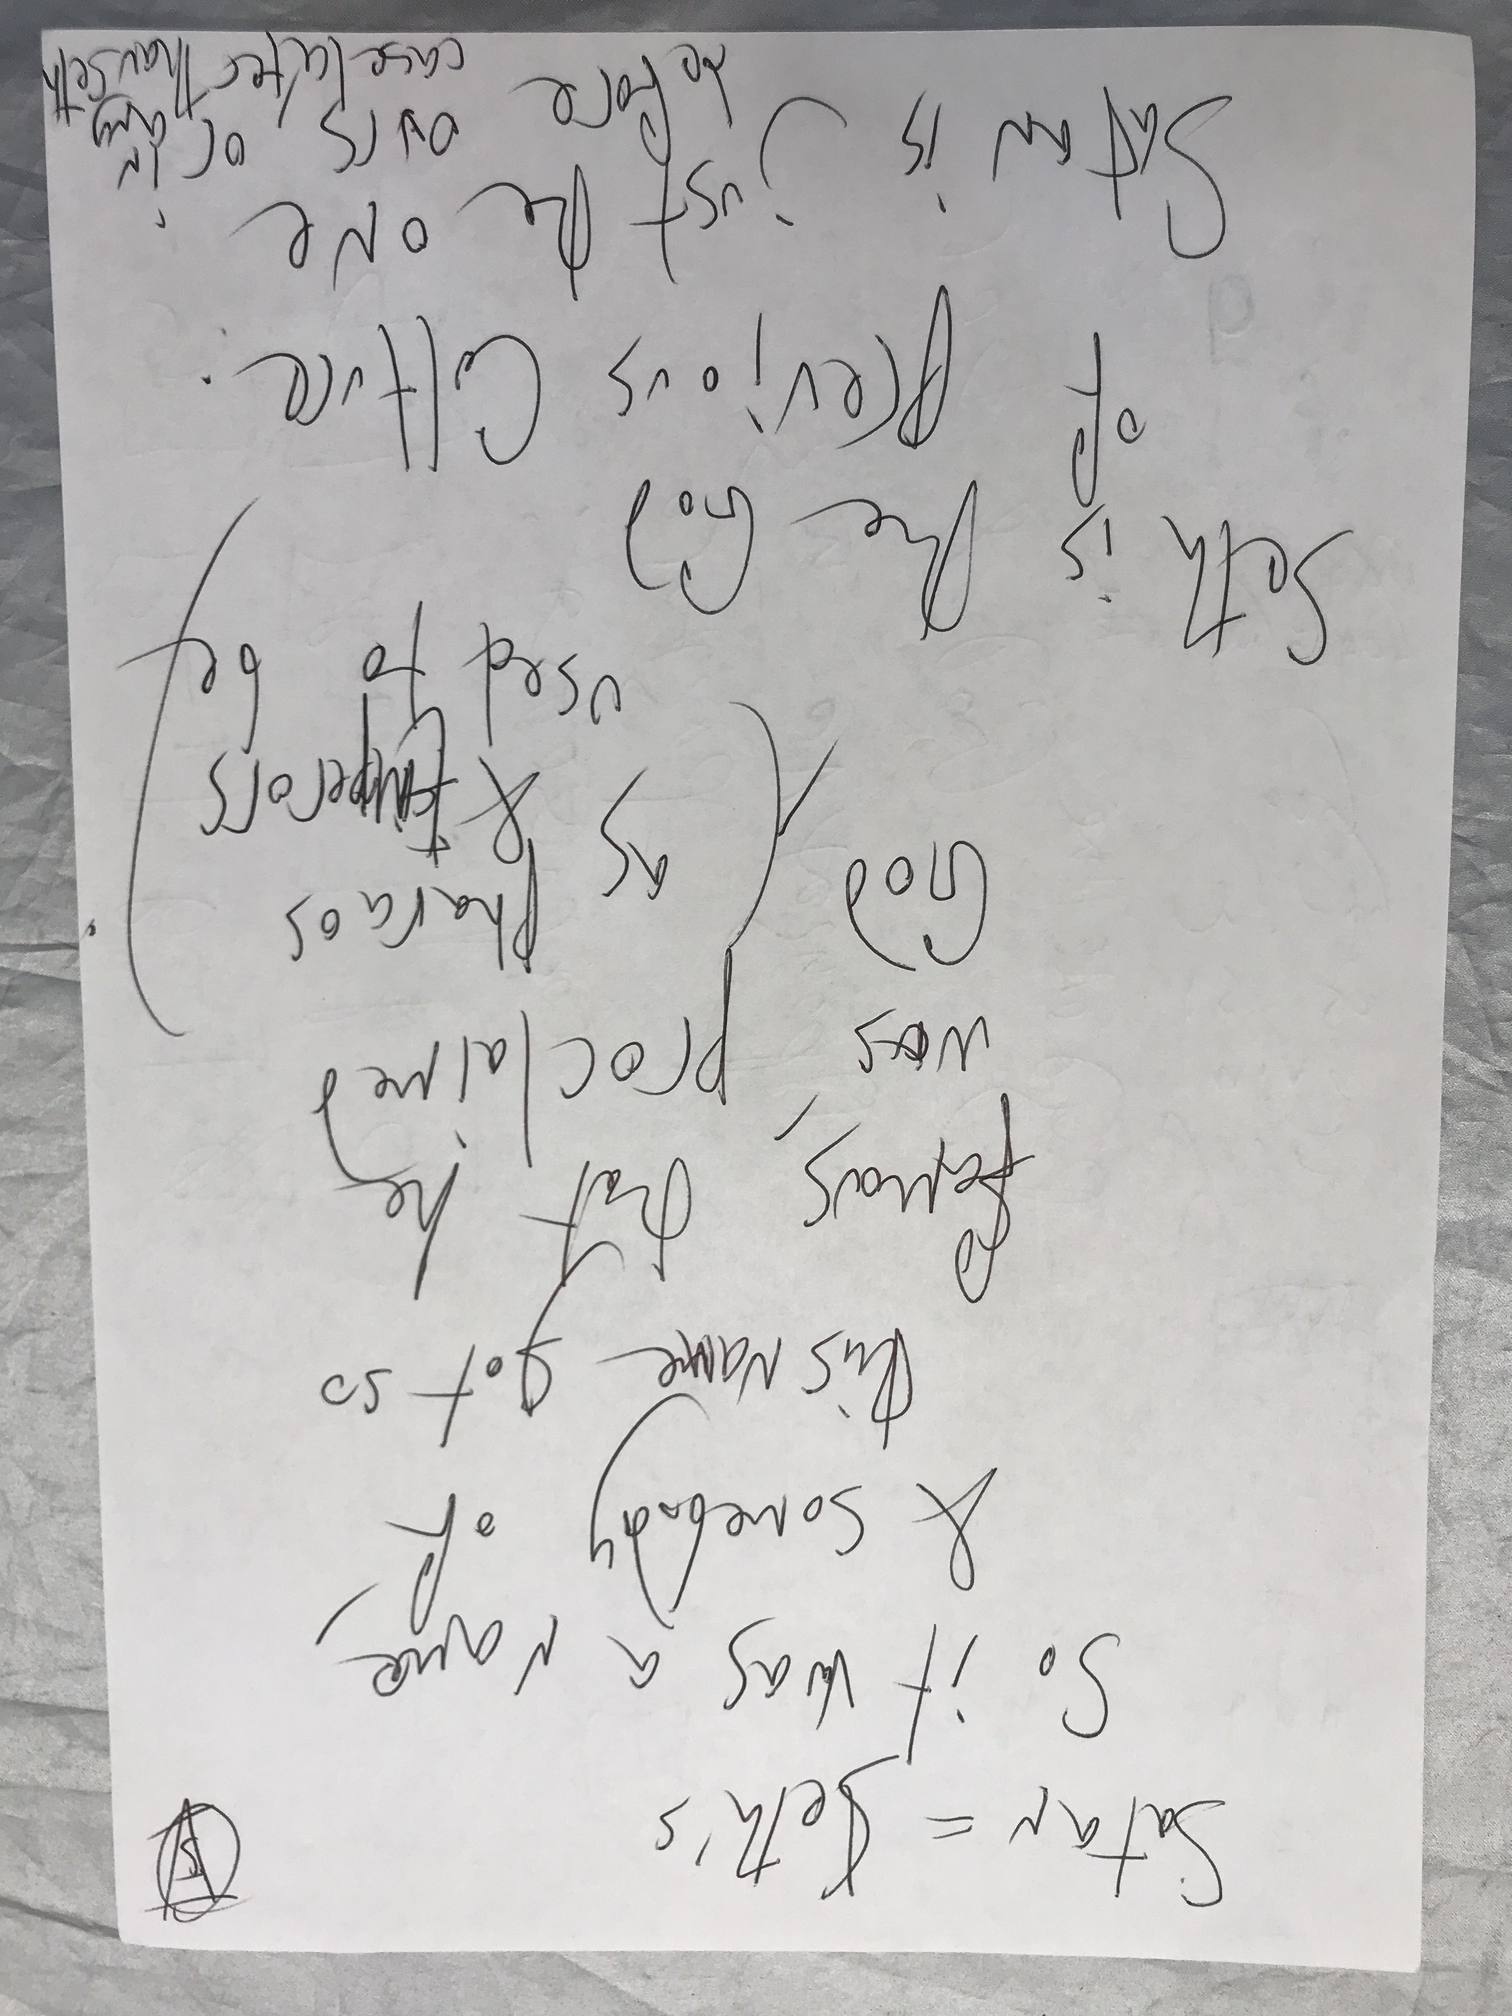 Satan = Seth's
So it was a Name,
& somebody of
this Name got so
famous, that he
was proclaimed
God (as Pharaos
& Emperors
used to be)
Seth is the God
of previous Culture.
Satan is just the one
before ours or in any
case later than Seth